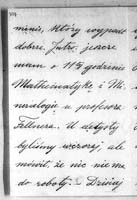 minie, który wypadł
dobrze. Jutro jeszcze
mam o 11½ godzinie
Mathematykę i Mi-
neralogię u profesora
U dentysty
byliśmy wczoraj, ale
mówił, że nic nie ma
do roboty. – Dzisiaj